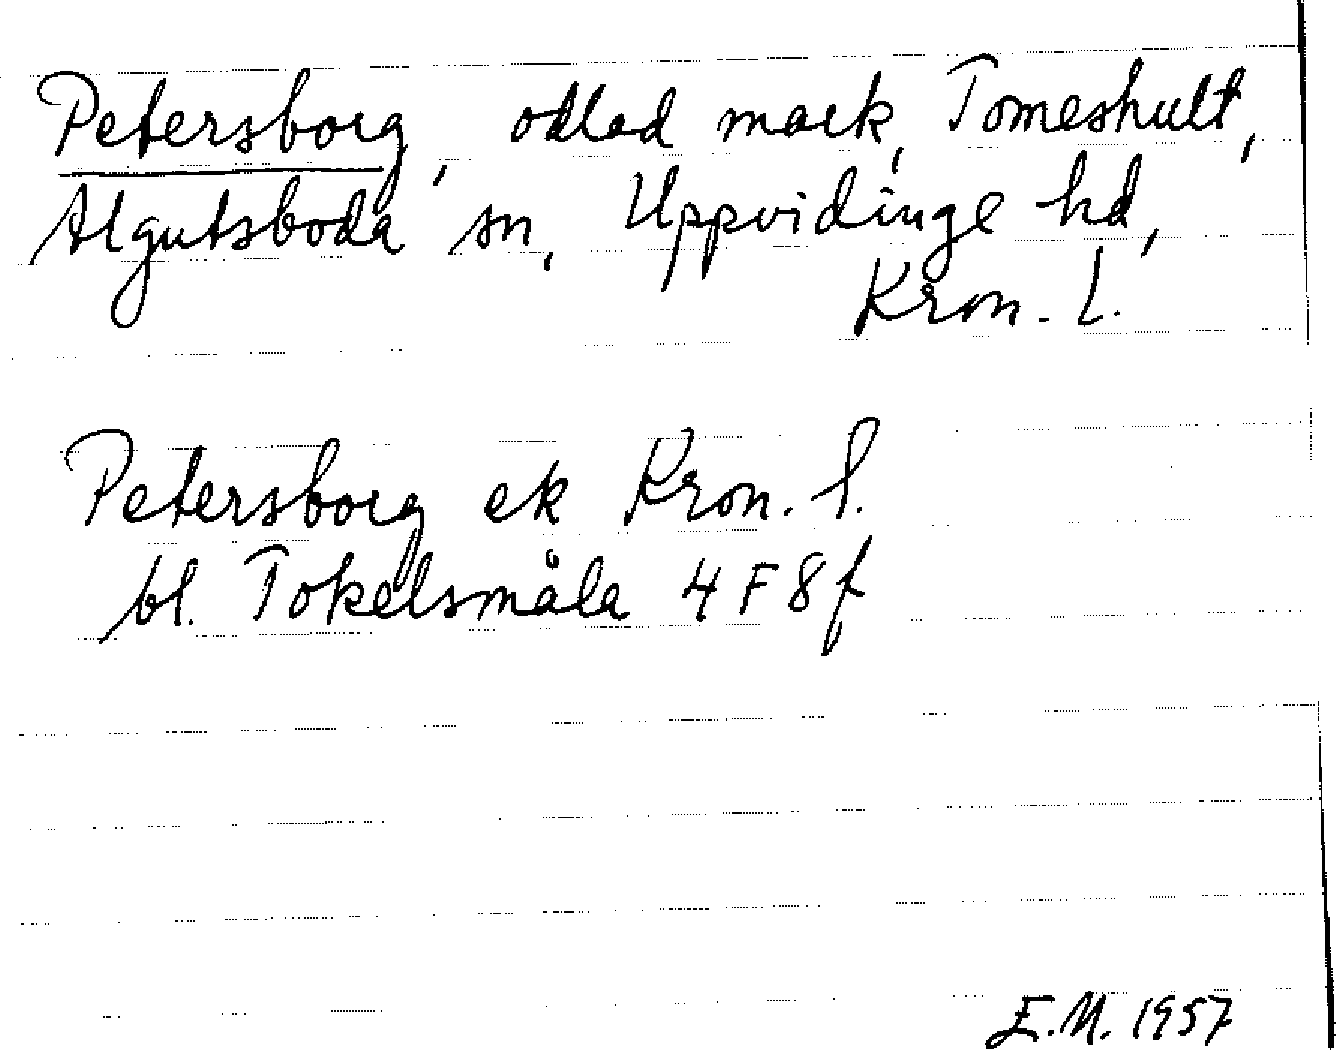 Petersborg, odlad mark, Tomeshult,
Algutsboda sn, Uppvidinge hd,
Kron. l.
Petersborg ek Kron. l.
bl. Tokelsmåla 4F8f
E.M. 1957